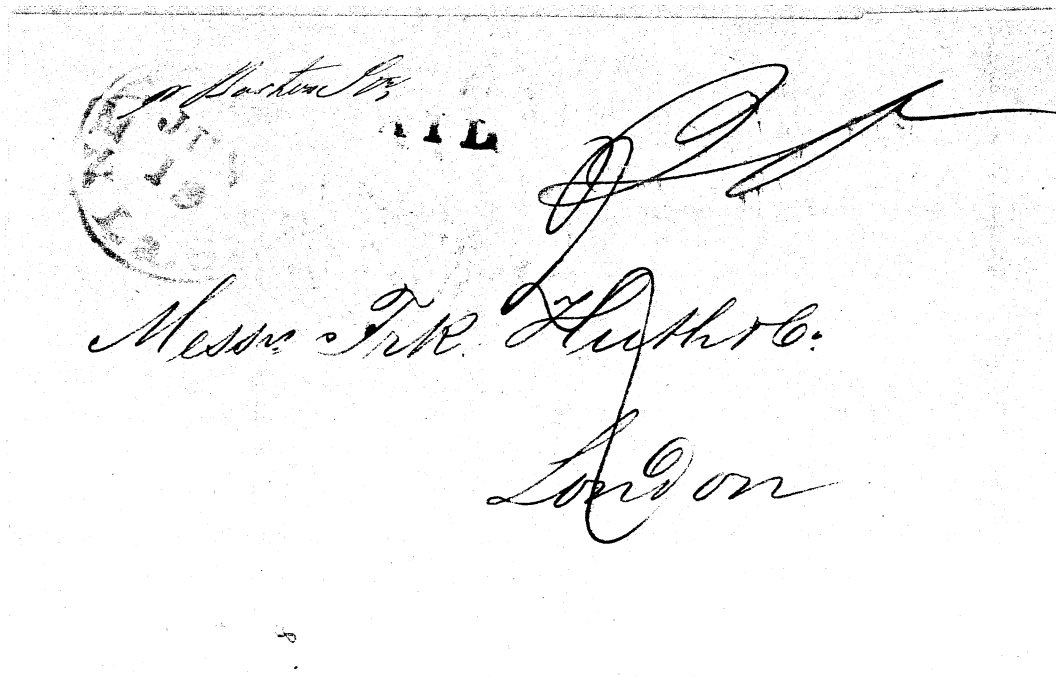 pr Boston Str
JUN
19
La.
AIL
Messrs Frk. Huth & Co:
London